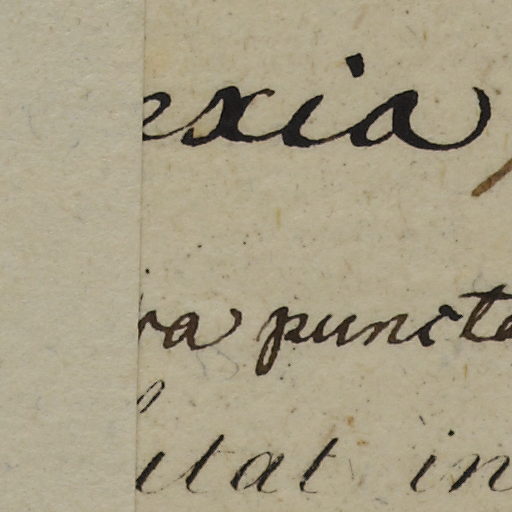 exia
va puncta
itat in